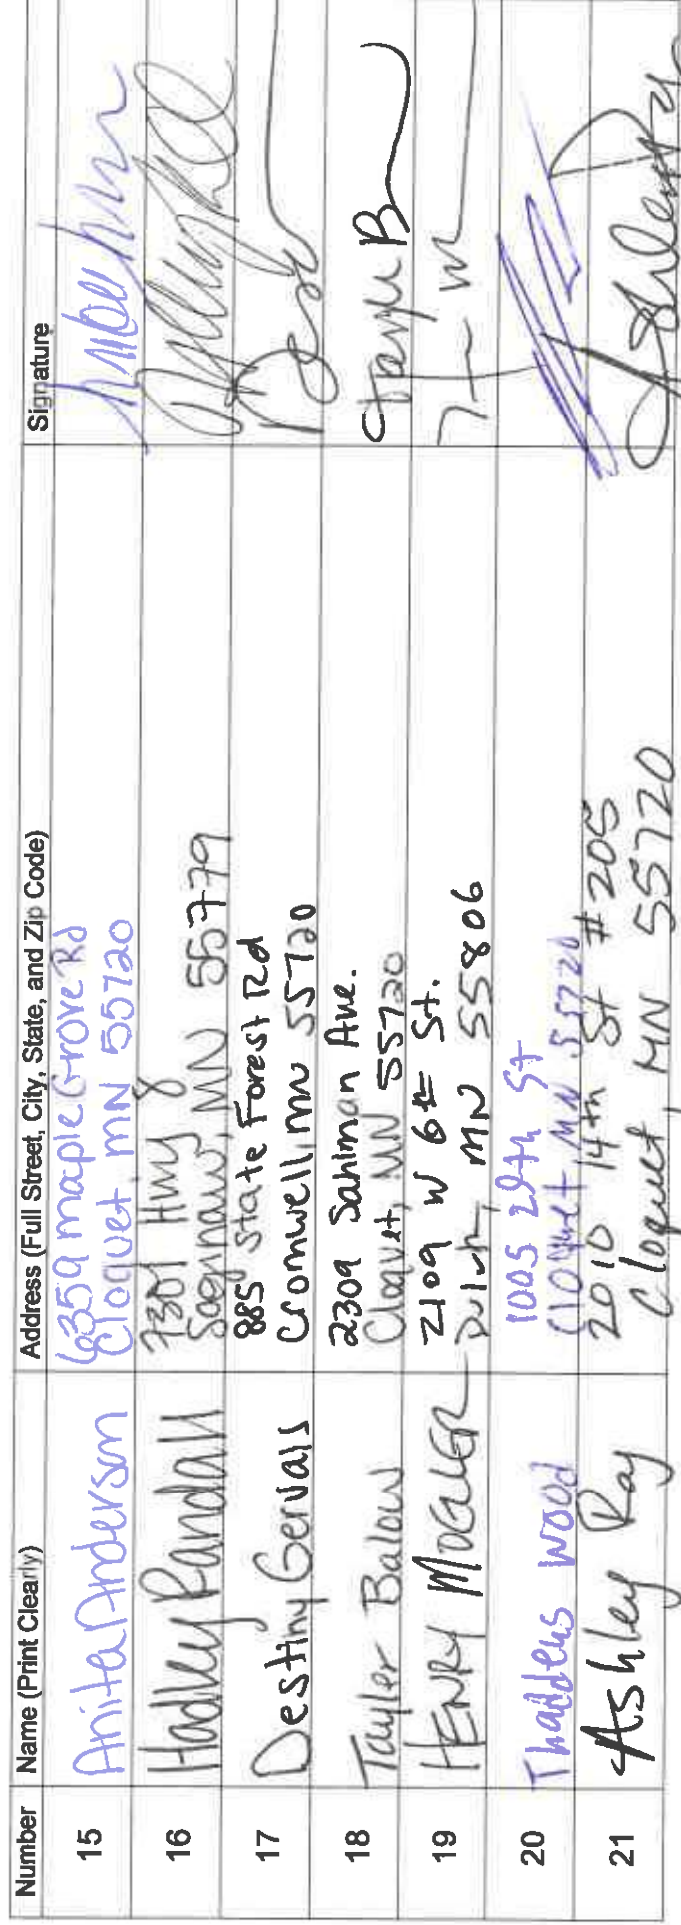 Number Name (Print Clearly) Address (Full Street, City, State, and Zip Code) Signature
15 Anita Anderson 6359 maple Grove Rd
Cloquet mn 55720
16 Hadley Randall 7301 Hwy 8
Saginaw, MN 55779
17 Destiny Gervais 885 State Forest Rd
Cromwell, mn 55720
18 Taylor Balow 2309 Sahlman Ave.
Cloquet, MN 55720
Taylor B
19 HENRY MOGLER 2109 W 6th St.
Duluth, MN 55806
20 Thaddeus Wood 1005 20th St
Cloquet MN 55720
21 Ashley Ray 2010 14th St #205
Cloquet, MN 55720